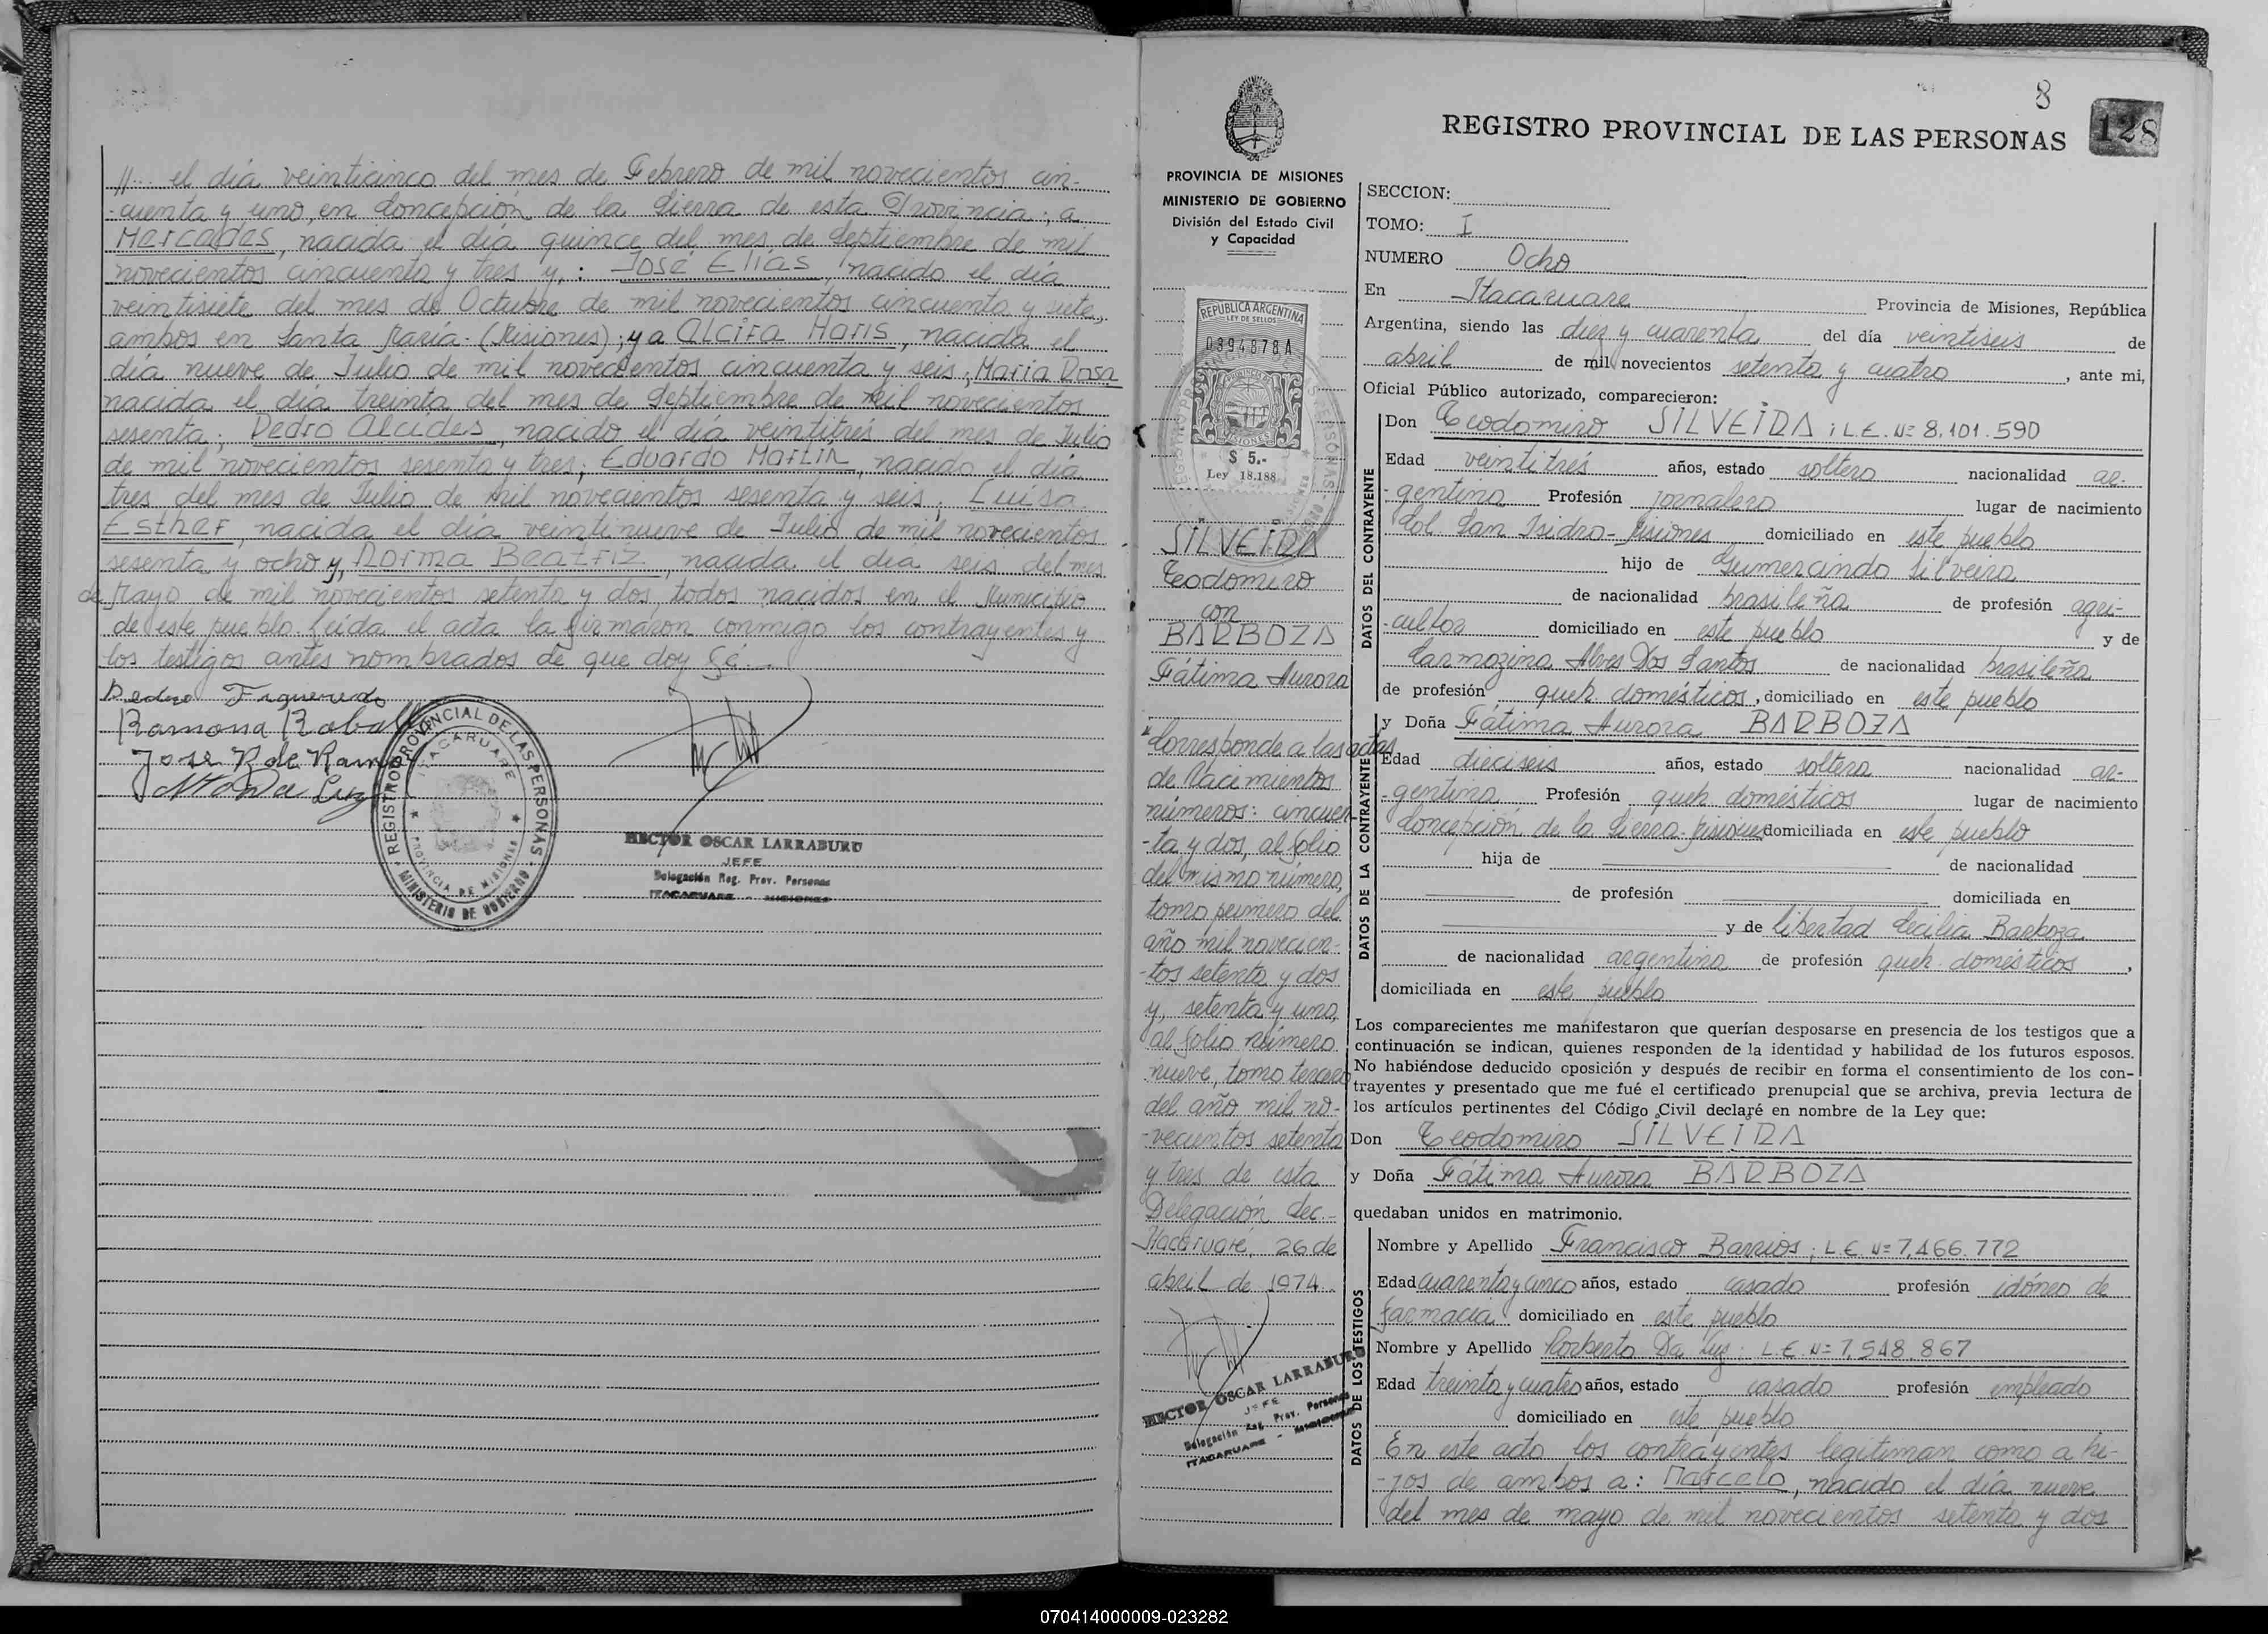 //... el día veinticinco del mes de Febrero de mil novecientos cin-
-cuenta y uno, en Concepción de la Sierra de esta Provincia; a
Mercedes, nacida el día quince del mes de Septiembre de mil
novecientos cincuenta y tres y,: José Elias, nacido el día
veintisiete del mes de Octubre de mil novecientos cincuenta y siete,
ambos en Santa María-(Misiones); y a Alcira Maris, nacida el
día nueve de Julio de mil novecientos cincuenta y seis; Maria Rosa
nacida el día treinta del mes de Septiembre de mil novecientos
sesenta; Pedro Alcides, nacido el día veintitrés del mes de Julio
de mil novecientos sesenta y tres; Eduardo Martín, nacido el día
tres del mes de Julio de mil novecientos sesenta y seis; Luisa
Esther, nacida el día veintinueve de Julio de mil novecientos
sesenta y ocho y, Norma Beatriz, nacida el día seis del mes
de Mayo de mil novecientos setenta y dos, todos nacidos en el Municipio
de este pueblo. Leída el acta la firmaron conmigo los contrayentes y
los testigos antes nombrados de que doy fé.-
Pedro Figueredo
Ramona
REGISTRO PROVINCIAL DE LAS PERSONAS
ITACARUARE
PROVINCIA DE MISIONES
MINISTERIO DE GOBIERNO
HECTOR OSCAR LARRABURU
JEFE
Delegación Reg. Prov. Personas
ITACARUARE - MISIONES
8
128
REGISTRO PROVINCIAL DE LAS PERSONAS
PROVINCIA DE MISIONES
MINISTERIO DE GOBIERNO
División del Estado Civil
y Capacidad
REPUBLICA ARGENTINA
LEY DE SELLOS
0394878A
MISIONES
$ 5.-
Ley 18.188
SILVEIRA
Teodomiro
con
BARBOZA
Fátima Aurora
Corresponde a las actas
de Nacimientos
números: cincuen-
-ta y dos, al folio
del mismo número,
tomo primero del
año mil novecien-
-tos setenta y dos
y, setenta y uno,
al folio número
nueve, tomo tercero
del año mil no-
-vecientos setenta
y tres de esta
Delegación Sec.-
Itacaruaré, 26 de
abril de 1974.-
HECTOR OSCAR LARRABURU
JEFE
Delegación Reg. Prov. Personas
ITACARUARE - MISIONES
SECCION:
TOMO: I
NUMERO Ocho
En Itacaruare Provincia de Misiones, República
Argentina, siendo las diez y cuarenta del día veintiseis de
abril de mil novecientos setenta y cuatro, ante mi,
Oficial Público autorizado, comparecieron:
DATOS DEL CONTRAYENTE
Don Teodomiro SILVEIRA; L.E. Nº 8.101.590
Edad veintitrés años, estado soltero nacionalidad ar-
-gentina Profesión jornalero lugar de nacimiento
Col. San Isidro-Misiones domiciliado en este pueblo
hijo de Gumercindo Silveira
de nacionalidad brasileña de profesión agri-
-cultor domiciliado en este pueblo y de
Carmozina Alves Dos Santos de nacionalidad brasileña
de profesión queh. domésticos, domiciliado en este pueblo
DATOS DE LA CONTRAYENTE
y Doña Fátima Aurora BARBOZA
Edad dieciseis años, estado soltera nacionalidad ar-
-gentina Profesión queh. domésticos lugar de nacimiento
Concepción de la Sierra-Misiones domiciliada en este pueblo
hija de de nacionalidad
de profesión domiciliada en
y de Libertad Cecilia Barboza
de nacionalidad argentina de profesión queh. domésticos,
domiciliada en este pueblo
Los comparecientes me manifestaron que querían desposarse en presencia de los testigos que a
continuación se indican, quienes responden de la identidad y habilidad de los futuros esposos.
No habiéndose deducido oposición y después de recibir en forma el consentimiento de los con-
trayentes y presentado que me fué el certificado prenupcial que se archiva, previa lectura de
los artículos pertinentes del Código Civil declaré en nombre de la Ley que:
Don Teodomiro SILVEIRA
y Doña Fátima Aurora BARBOZA
quedaban unidos en matrimonio.
DATOS DE LOS TESTIGOS
Nombre y Apellido Francisco Barrios; L.E. Nº 7.466.772
Edad cuarenta y cinco años, estado casado profesión idóneo de
farmacia domiciliado en este pueblo
Nombre y Apellido Norberto Da Luz; L.E. Nº 7.548.867
Edad treinta y cuatro años, estado casado profesión empleado
domiciliado en este pueblo
En este acto los contrayentes legitiman como a hi-
-jos de ambos a: Marcelo, nacido el día nueve
del mes de mayo de mil novecientos setenta y dos
070414000009-023282